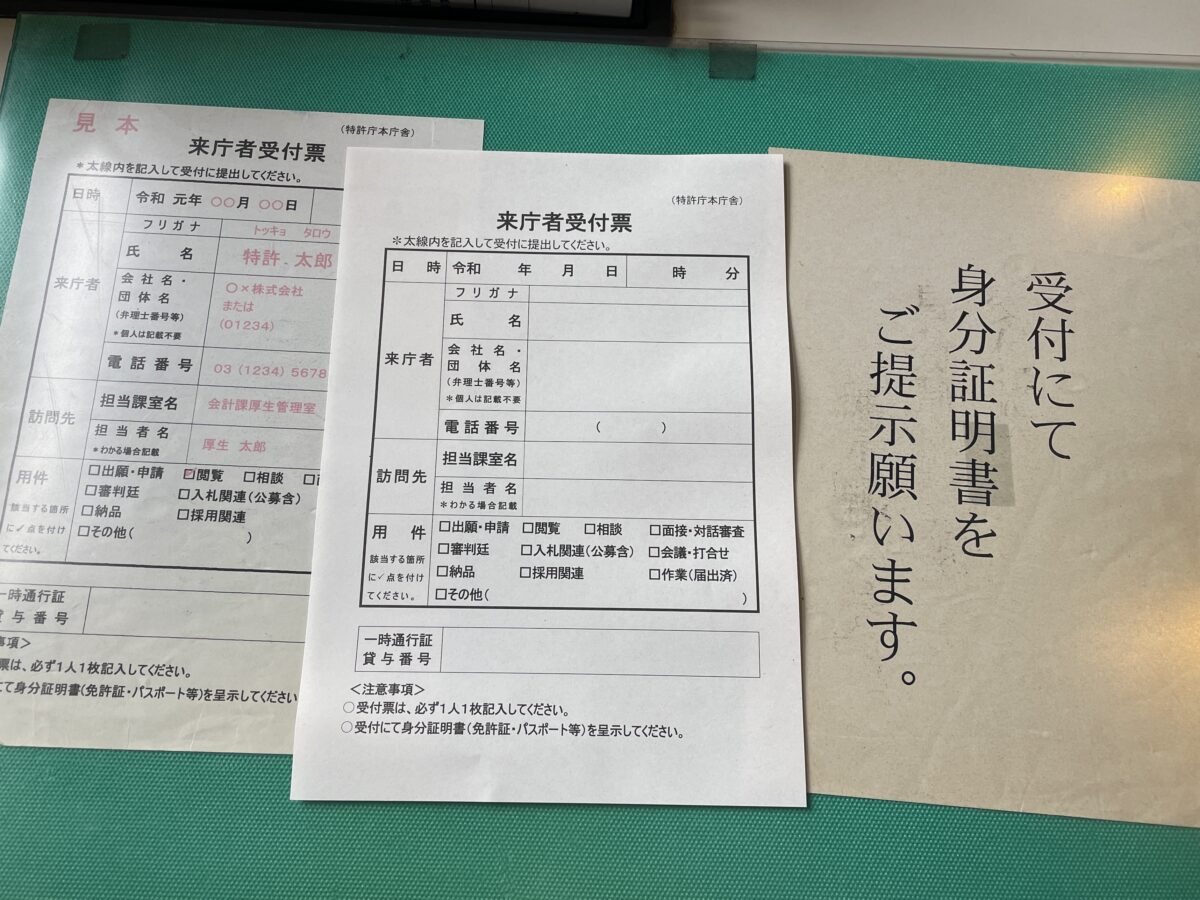 見本
(特許庁本庁舎)
来庁者受付票
*太線内を記入して受付に提出してください。
日時 令和 元年 〇〇月 〇〇日
来庁者
フリガナ トッキョ タロウ
氏名 特許.太郎
会社名・
団体名
(弁理士番号等)
*個人は記載不要
〇×株式会社
または
(01234)
電話番号 03 (1234) 5678
訪問先
担当課室名 会計課厚生管理室
担当者名
*わかる場合記載
厚生 太郎
用件
該当する箇所
に✓点を付け
てください。
□出願・申請 ☑閲覧 □相談
□審判廷 □入札関連(公募含)
□納品 □採用関連
□その他( )
一時通行証
貸与番号
事項>
票は、必ず1人1枚記入してください。
にて身分証明書(免許証・パスポート等)を呈示してください
(特許庁本庁舎)
来庁者受付票
※太線内を記入して受付に提出してください。
日時 令和 年 月 日 時 分
来庁者
フリガナ
氏名
会社名・
団体名
(弁理士番号等)
*個人は記載不要
電話番号 ( )
訪問先
担当課室名
担当者名
*わかる場合記載
用件
該当する箇所
に✓点を付け
てください。
□出願・申請 □閲覧 □相談 □面接・対話審査
□審判廷 □入札関連(公募含) □会議・打合せ
□納品 □採用関連 □作業(届出済)
□その他( )
一時通行証
貸与番号
<注意事項>
〇受付票は、必ず1人1枚記入してください。
〇受付にて身分証明書(免許証・パスポート等)を呈示してください。
受付にて
身分証明書を
ご提示願います。